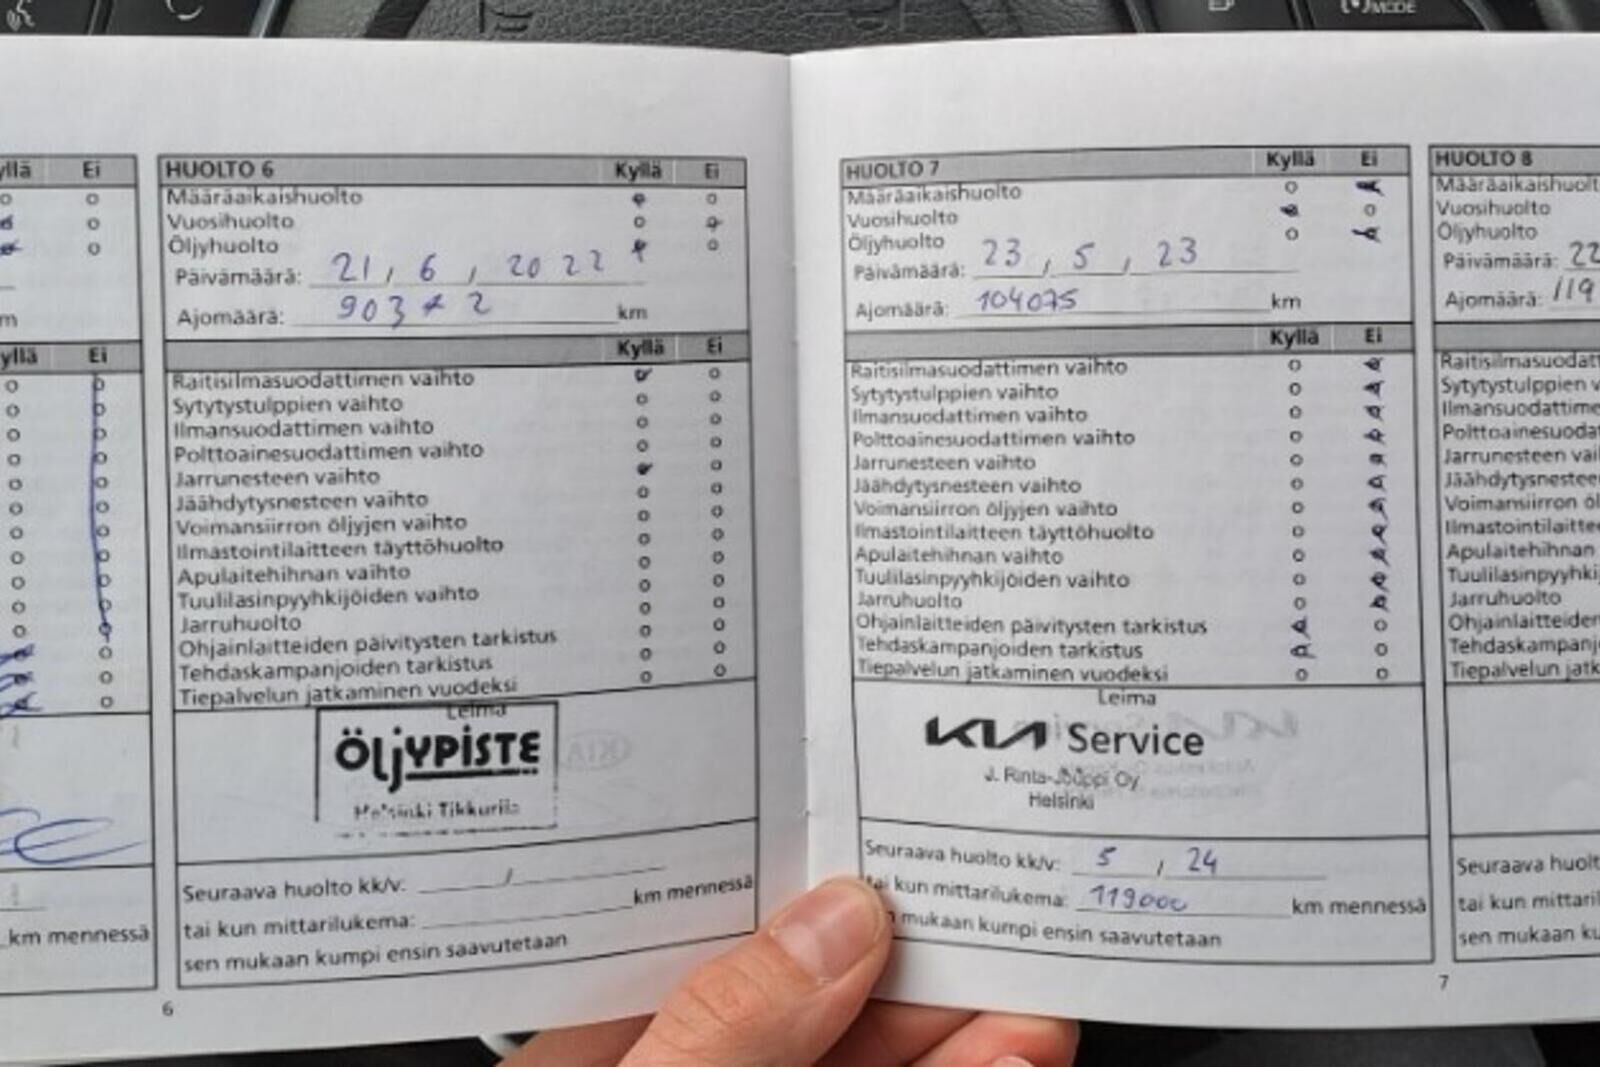 MODE
yllä Ei
m
yllä Ei
km mennessä
HUOLTO 6 Kyllä Ei
Määräaikaishuolto
Vuosihuolto
Öljyhuolto
Päivämäärä: 21, 6, 2022
Ajomäärä: km
Kyllä Ei
Raitisilmasuodattimen vaihto
Sytytystulppien vaihto
Ilmansuodattimen vaihto
Polttoainesuodattimen vaihto
Jarrunesteen vaihto
Jäähdytysnesteen vaihto
Voimansiirron öljyjen vaihto
Ilmastointilaitteen täyttöhuolto
Apulaitehihnan vaihto
Tuulilasinpyyhkijöiden vaihto
Jarruhuolto
Ohjainlaitteiden päivitysten tarkistus
Tehdaskampanjoiden tarkistus
Tiepalvelun jatkaminen vuodeksi
Leima
ÖLJYPISTE
Helsinki Tikkurila
Seuraava huolto kk/v: /
tai kun mittarilukema: km mennessä
sen mukaan kumpi ensin saavutetaan
6
HUOLTO 7 Kyllä Ei
Määräaikaishuolto
Vuosihuolto
Öljyhuolto
Päivämäärä: 23, 5, 23
Ajomäärä: 104075 km
Kyllä Ei
Raitisilmasuodattimen vaihto
Sytytystulppien vaihto
Ilmansuodattimen vaihto
Polttoainesuodattimen vaihto
Jarrunesteen vaihto
Jäähdytysnesteen vaihto
Voimansiirron öljyjen vaihto
Ilmastointilaitteen täyttöhuolto
Apulaitehihnan vaihto
Tuulilasinpyyhkijöiden vaihto
Jarruhuolto
Ohjainlaitteiden päivitysten tarkistus
Tehdaskampanjoiden tarkistus
Tiepalvelun jatkaminen vuodeksi
Leima
KIA Service
J. Rinta-Jouppi Oy
Helsinki
Seuraava huolto kk/v: 5 / 24
tai kun mittarilukema: 119000 km mennessä
n mukaan kumpi ensin saavutetaan
7
HUOLTO 8
Määräaikaishuolt
Vuosihuolto
Öljyhuolto
Päivämäärä: 22
Ajomäärä: 119
Raitisilmasuodatt
Sytytystulppien v
Ilmansuodattime
Polttoainesuodat
Jarrunesteen vai
Jäähdytysnestee
Voimansiirron öl
Ilmastointilaitte
Apulaitehihnan
Tuulilasinpyyhki
Jarruhuolto
Ohjainlaitteiden
Tehdaskampanj
Tiepalvelun jatk
Seuraava huolt
tai kun mittaril
sen mukaan ku